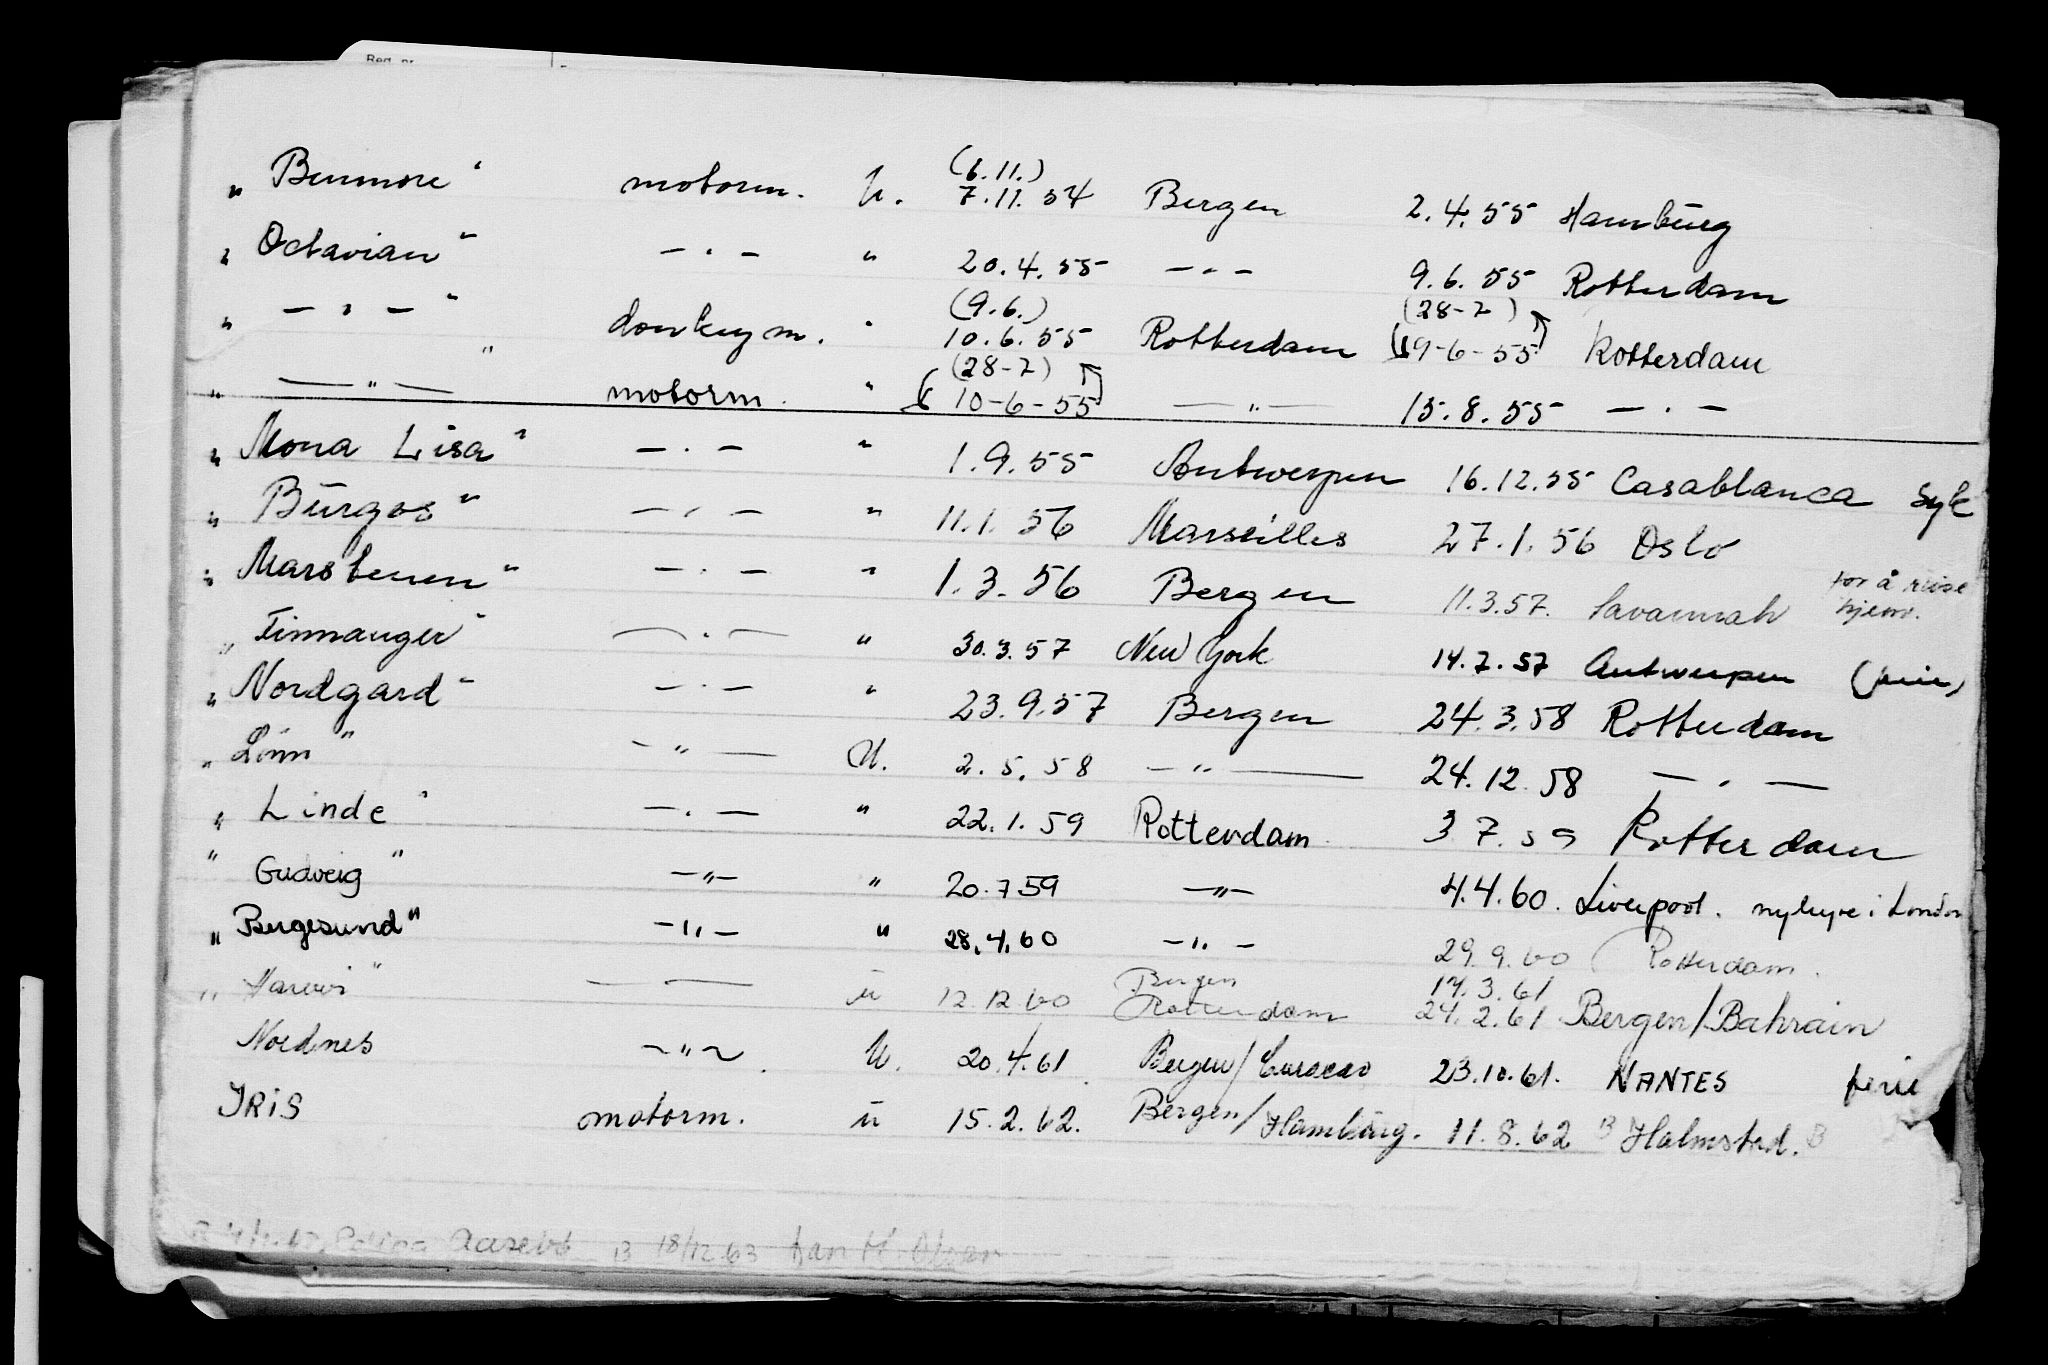 „ Benmore “ motorm. U. (6.11.) 7.11.54 Bergen 2.4.55 Hamburg
„ Octavian “ — " — " 20.4.55 — " — 9.6.55 Rotterdam
„ — " — “ donkeym. " (9.6.) 10.6.55 Rotterdam (28-7) (19-6-55) Rotterdam
„ — " — “ motorm. " (28-7) (10-6-55) — " — 15.8.55 — " —
„ Mona Lisa “ — " — " 1.9.55 Antwerpen 16.12.55 Casablanca Syk
„ Burgos “ — " — " 11.1.56 Marseilles 27.1.56 Oslo
„ Marstenen “ — " — " 1.3.56 Bergen 11.3.57. Savannah for å reise hjem.
„ Finnanger “ — " — " 30.3.57 New York 14.7.57 Antwerpen
„ Nordgard “ — " — " 23.9.57 Bergen 24.3.58 Rotterdam
„ Lönn “ — " — U. 2.5.58 — " — 24.12.58 — " —
„ Linde “ — " — " 22.1.59 Rotterdam 3 7.59 Rotterdam
" Gudveig “ — " — " 20.7 59 — " — 4.4.60. Liverpool. nyhyre i London
„ Bergesund “ — " — " 28.4.60 — " — 29.9.60 Rotterdam.
„ “ — — u 12.12.60 Bergen Rotterdam 17.3.61 24.2.61 Bergen/Bahrain
Nordnes — " — U. 20.4.61 Bergen/Curacao 23.10.61. NANTES ferie
IRIS motorm. u 15.2.62. Bergen/Hamburg. 11.8.62 B Halmstad. B
B 18/12 63